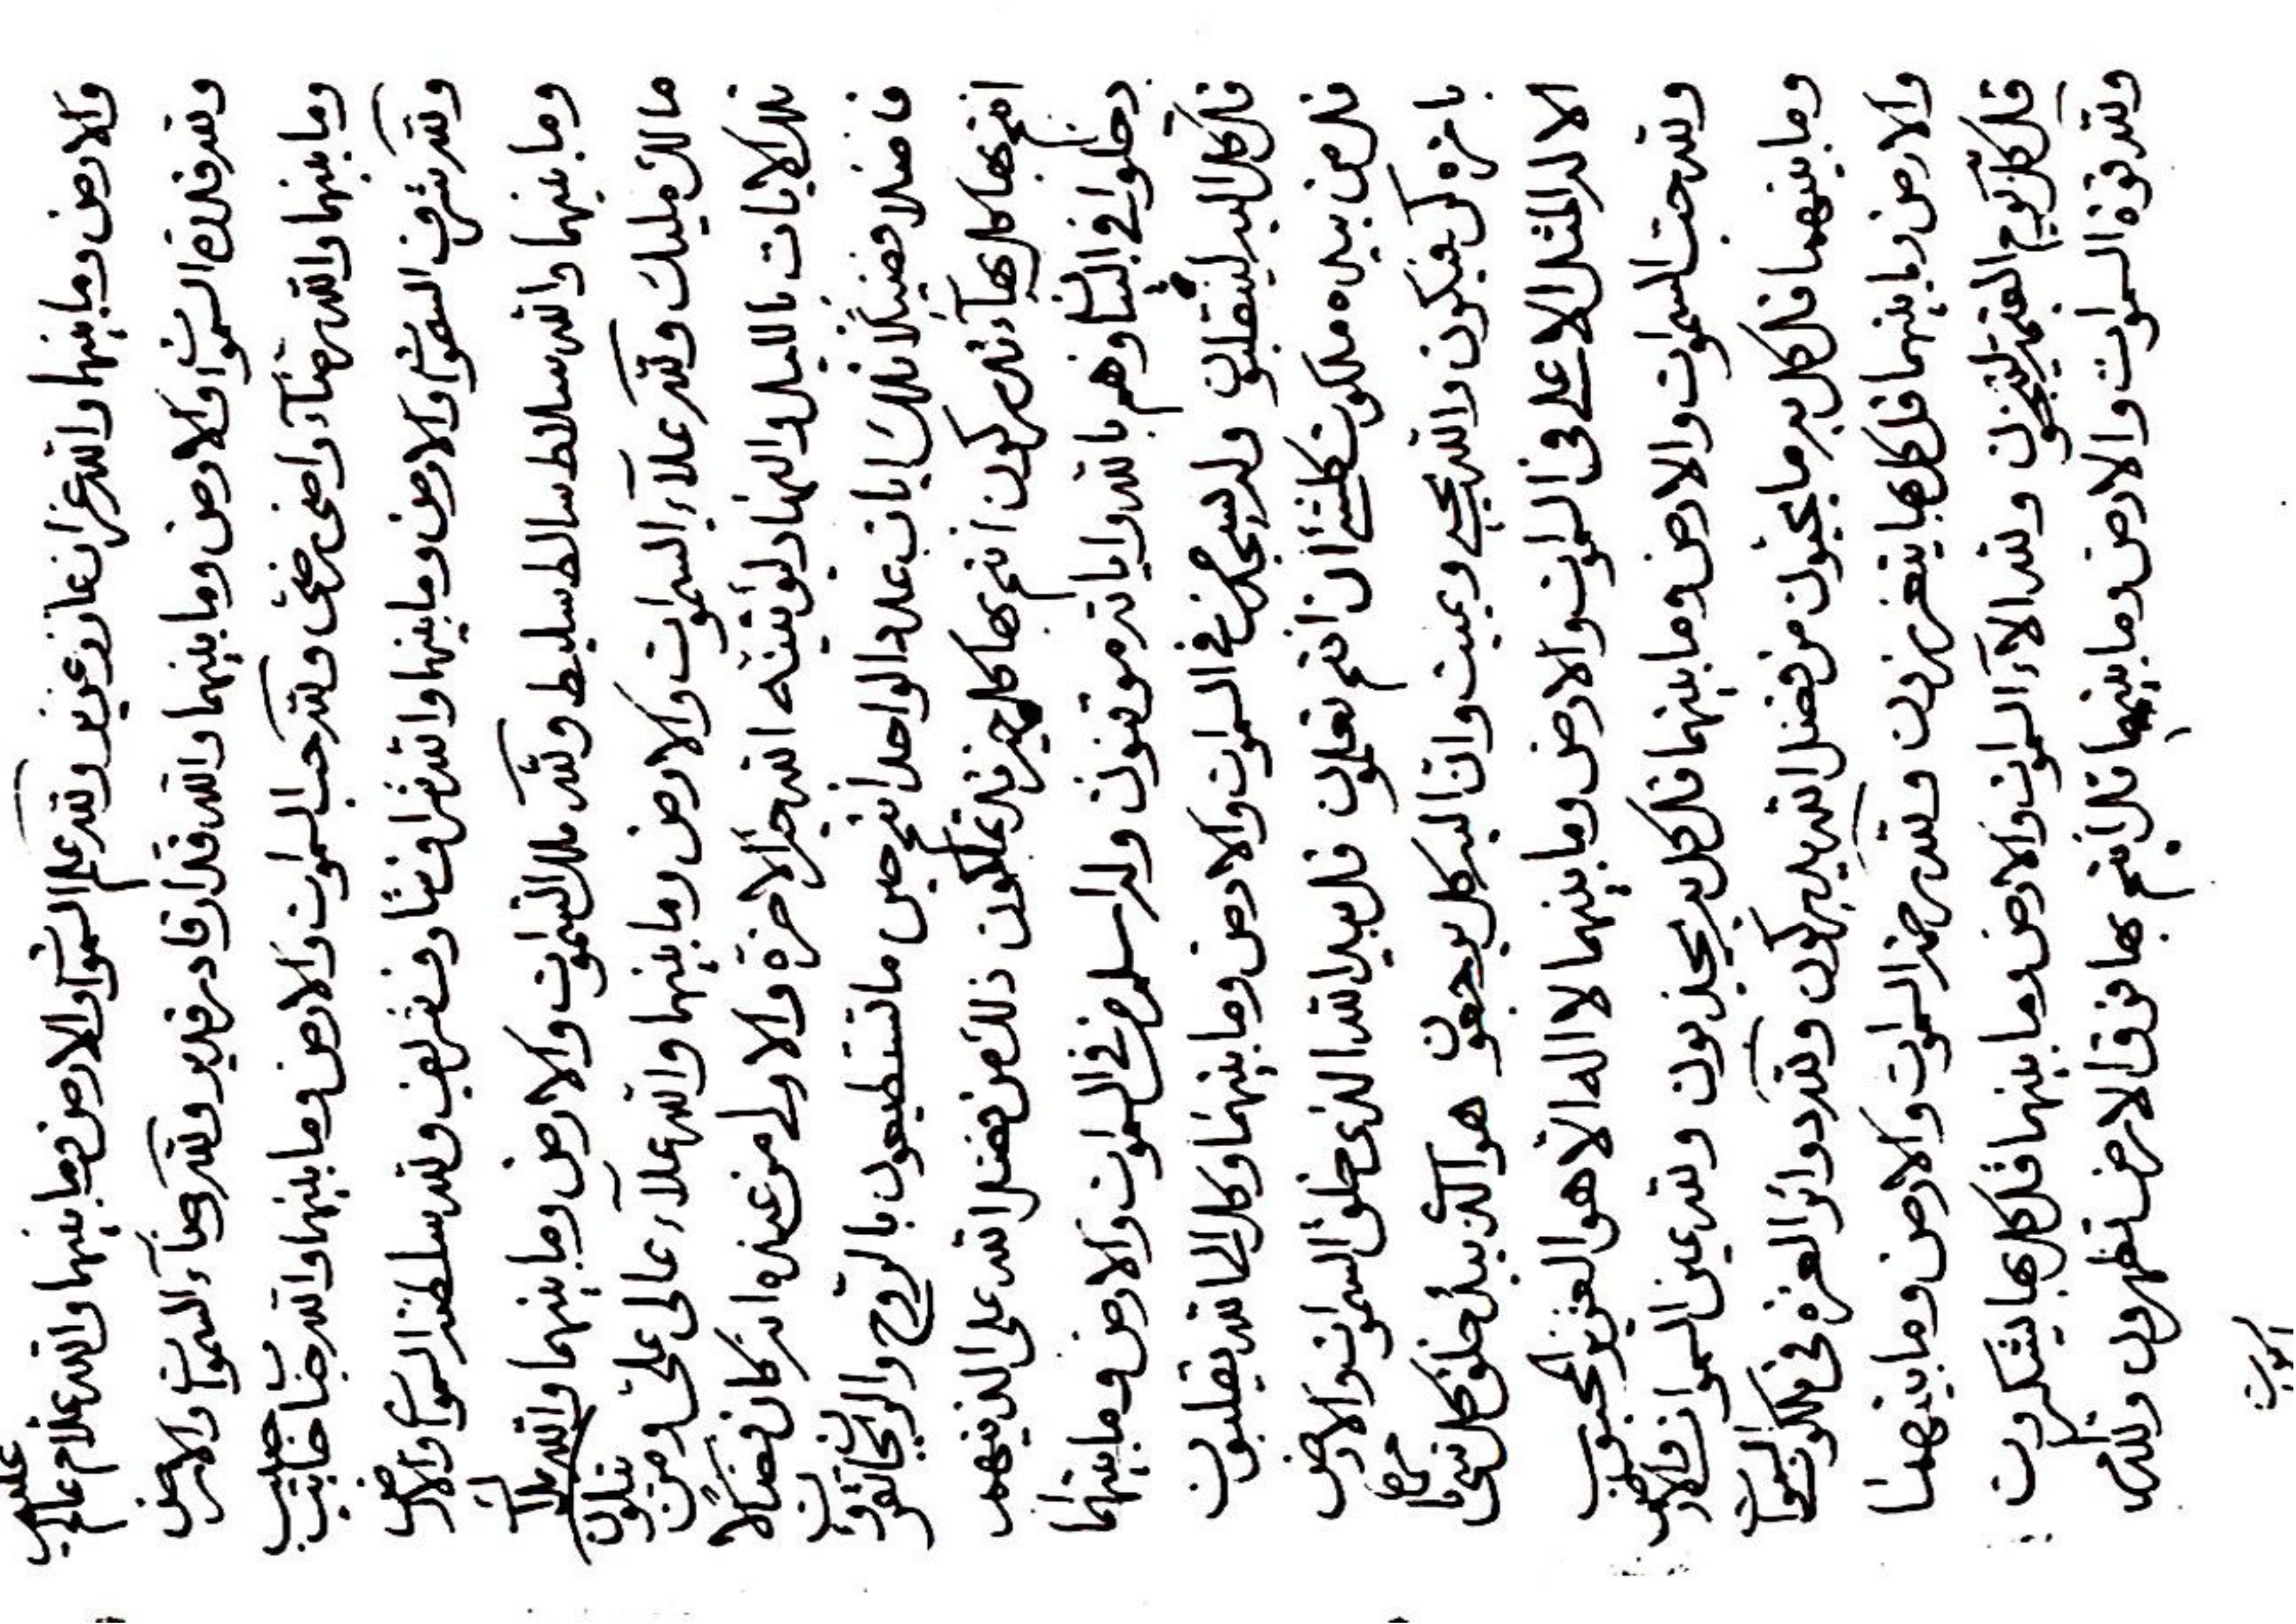 والارض وما بينهما والله عزان عازز عزيز ولله علم السموات والارض وما بينهما والله علام عالم عليم
ولله قدرة السموات والارض وما بينهما والله قدار قادر قدير ولله رضاء السموات والارض
وما بينهما والله رضاء راضى رضى ولله حب السموات والارض وما بينهما والله حباب حابب حبيب
ولله شرف السموات والارض وما بينهما والله شراف شارف شريف ولله سلطنة السموات والارض
وما بينهما والله سلاط سالط سليط ولله ملك السموات والارض وما بينهما والله ملاك
مالك مليك ولله علاء السموات والارض وما بينهما والله علاء عالى على ومن يتلون
تلك الايات بالليل والنهار ليؤتينه الله خير الاخرة والاولى من عنده انه كان فضالا
فاضلا فضيلا تلك ايات عدد الواحد انتم حين ما تستطيعون بالروح والريحان تقرؤن
انتم بها كل بهاء تدركون انتم بها كل خير تملكون ذلك من فضل الله على الذينهم
دخلوا فى البيان وهم بالله واياته موقنون وله اسلم من فى السموات والارض وما بينهما
قل كل اليه لينقلبون وله يسجد من فى السموات والارض وما بينهما وكل الى الله يقلبون
قل من بيده ملكوت كلشئ ان انتم تعلمون قل بيد الله الذى خلق السموات والارض
بامره كن فيكون والله يحيى ويميت وان اليه كل يرجعون هو الذى يبدء خلق كل شئ
الا له المثل الاعلى فى السموات والارض وما بينهما لا اله الا هو العزيز المحبوب
ولله السموات والارض وما بينهما قل كل به يجذبون ولله عين السموات والارض
وما بينهما قل كل به ما يحبون من فضل الله يدركون ولله دوائر العزة فى ملكوت السموات
والارض وما بينهما قل كل بها يتعززون ولله السموات والارض وما بينهما
قل كل يوم القيمة لينجون ولله الاء السموات والارض وما بينهما قل كل بها ليشكرون
ولله قوة السموات والارض وما بينهما قل انتم بها فوق الارض تظهرون ولله